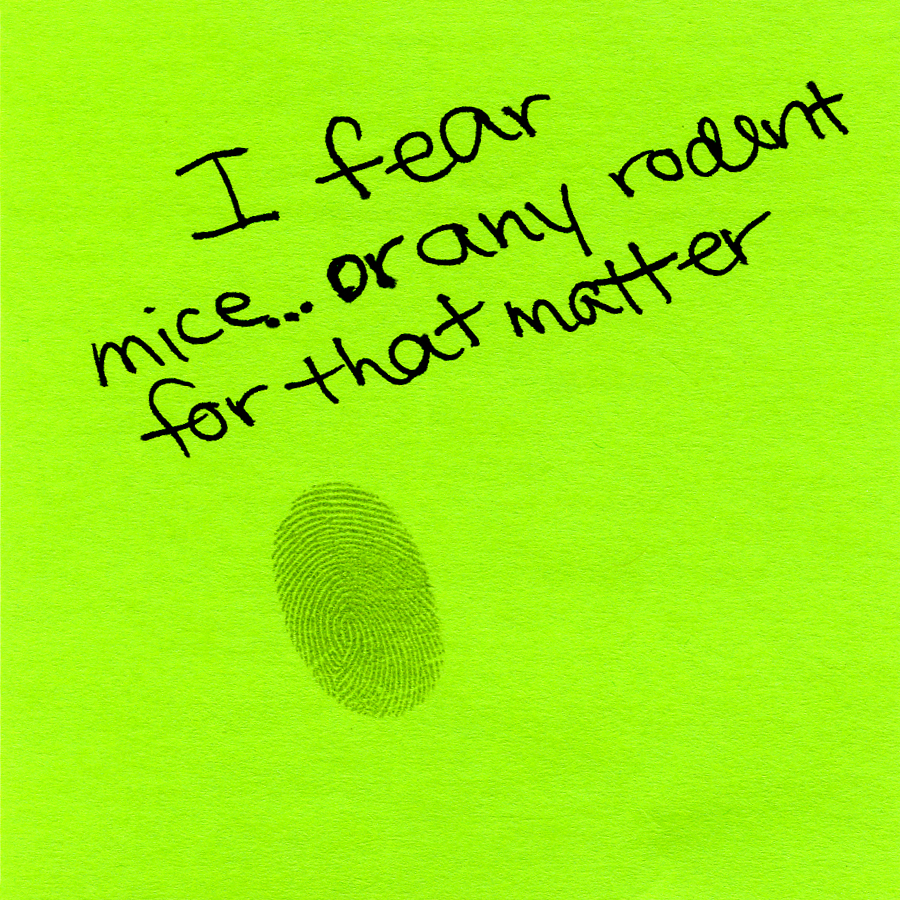 I fear
mice...or any rodent
for that matter